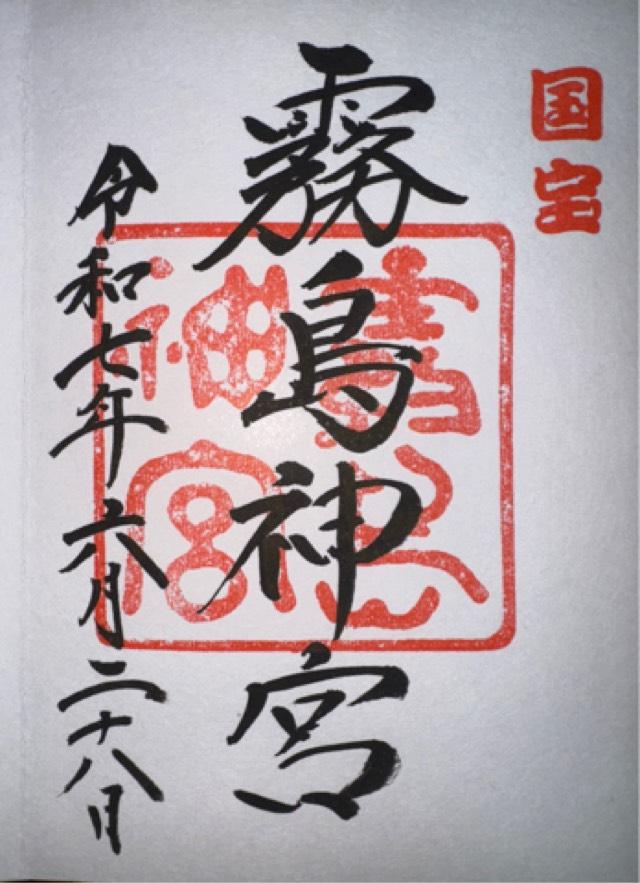 国宝
霧島神宮
霧島神宮
令和七年六月二十八日